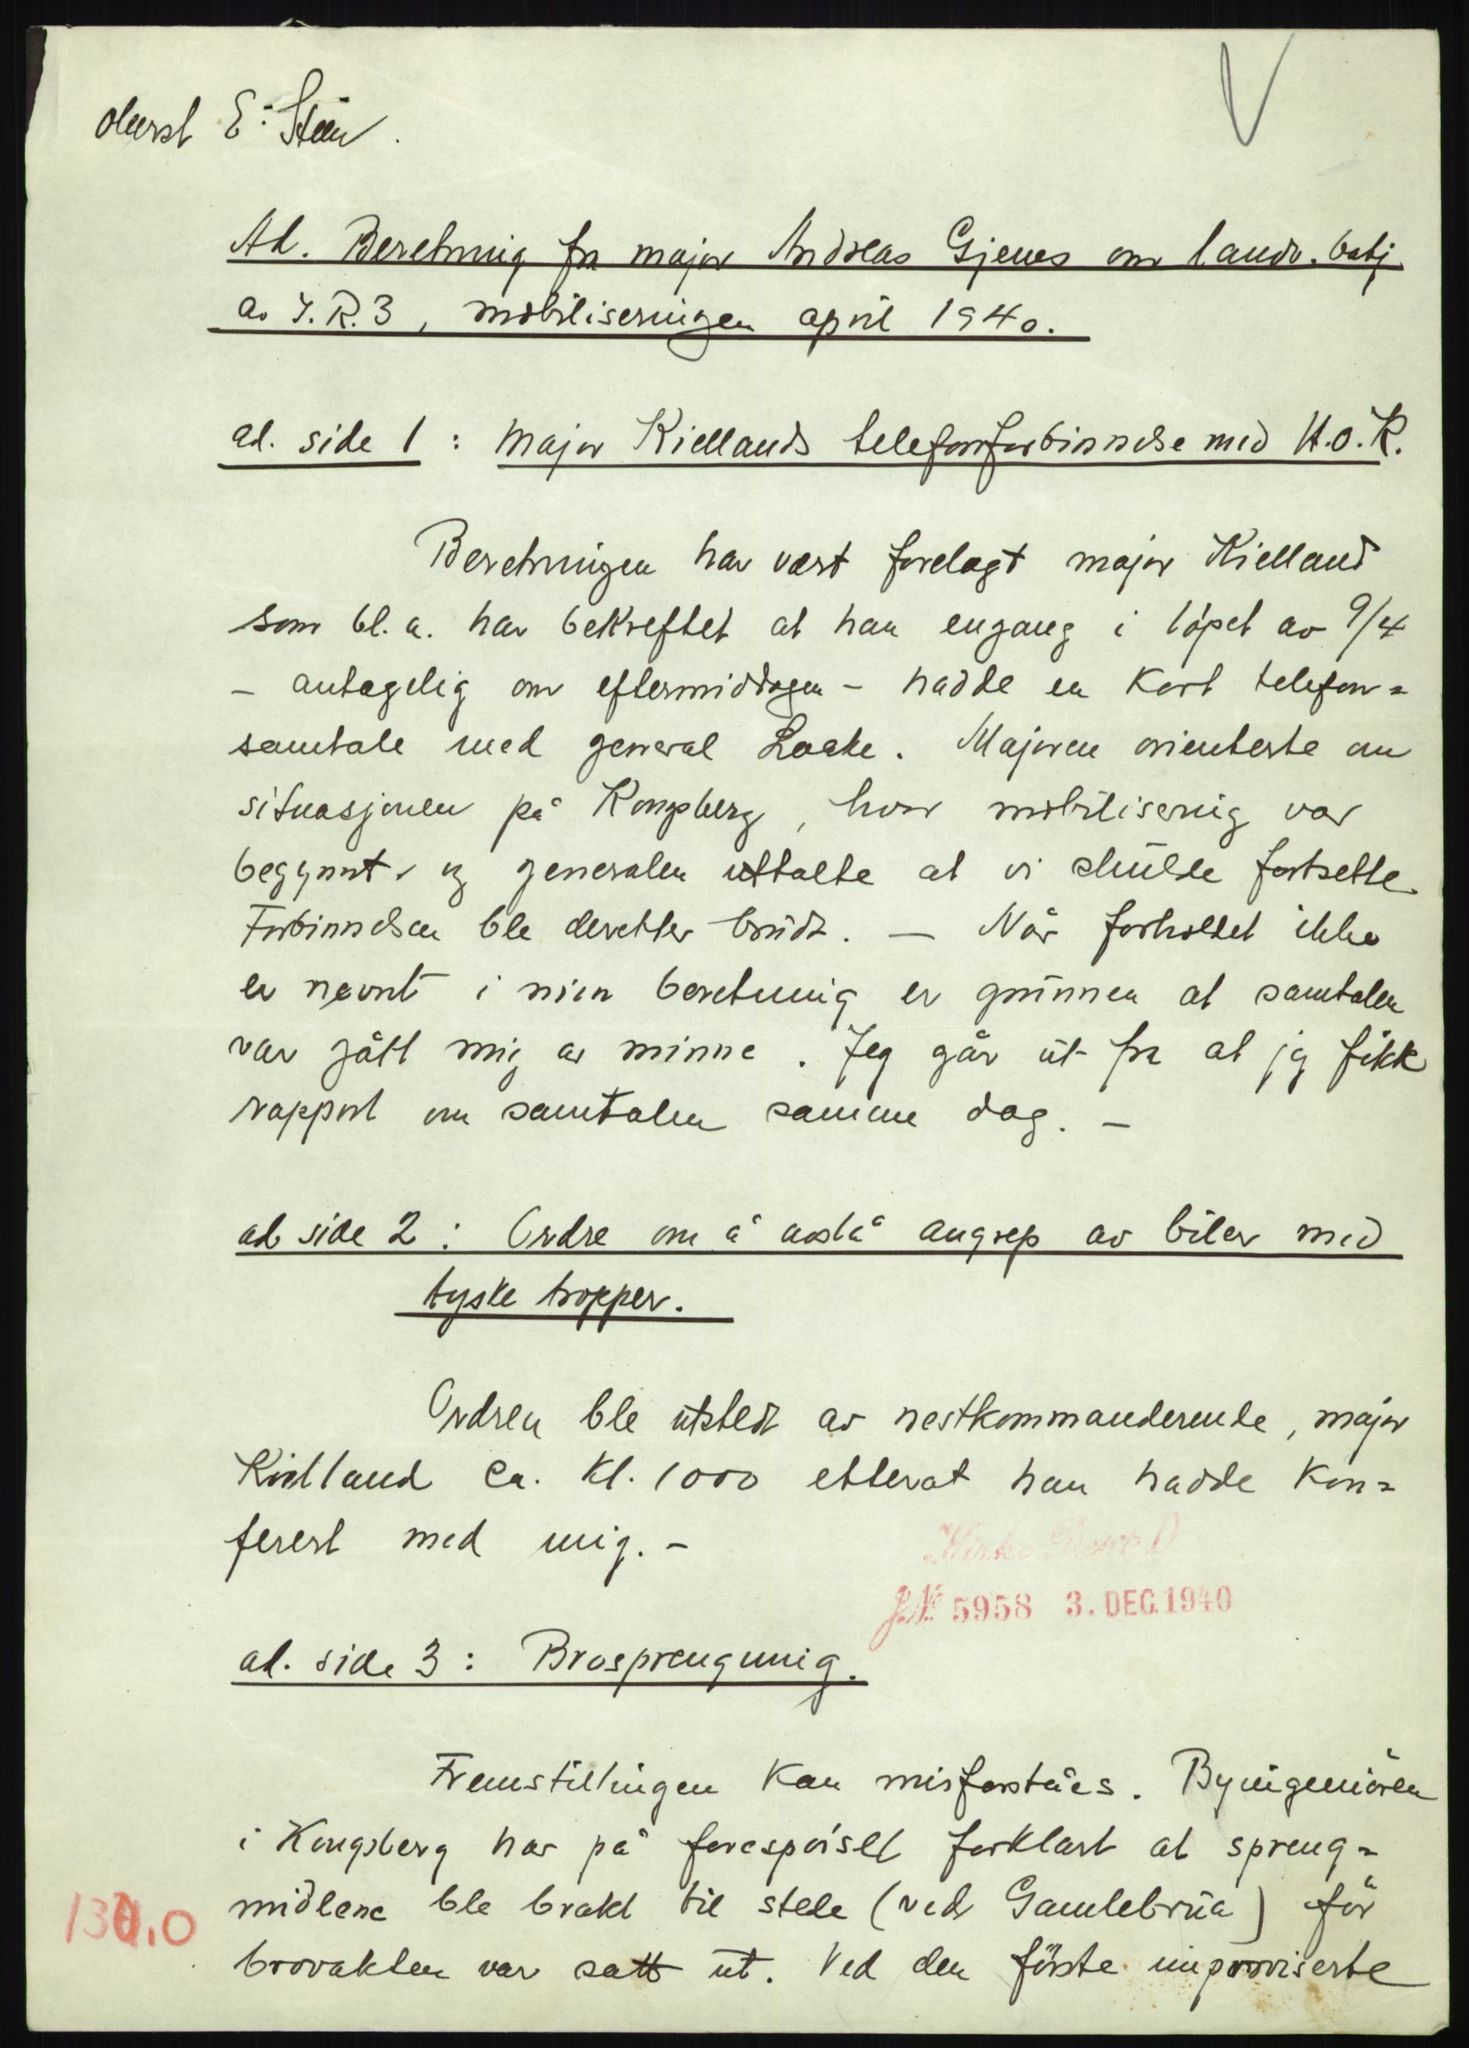 Oberst E. Steen.
Ad. Beretning fra major Andreas Gjenes om landv. batj.
av I.R.3, mobiliseringen april 1940.
ad. side 1 : Major Kiellands telefonforbinnelse med H.O.K.
Beretningen har vært forelagt major Kielland
som bl.a. har bekreftet at han engang i löpet av 9/4
– antagelig om eftermiddagen – hadde en kort telefon=
samtale med general Laake. Majoren orienterte om
situasjonen på Kongsberg, hvor mobilisering var
begynnt, og generalen uttalte at vi skulde fortsette.
Forbinnelsen ble deretter brudt. — Når forholdet ikke
er nevnt i min beretning er grunnen at samtalen
var gått mig av minne. Jeg går ut fra at jeg fikk
rapport om samtalen samme dag. –
ad side 2 : Ordre om å avslå angrep av biler med
tyske tropper.
Ordren ble utstedt av nestkommanderende, major
Kielland ca. kl. 1000 etterat han hadde kon=
ferert med mig. –
J.№ 5958 3. DEC. 1940
ad. side 3 : Brosprengning.
Fremstillingen kan misforståes. Byingeniören
i Kongsberg har på forespörsel forklart at spreng=
midlene ble brakt til stede (ved Gamlebrua) för
130.0
brovakten var satt ut. Ved den förste improviserte